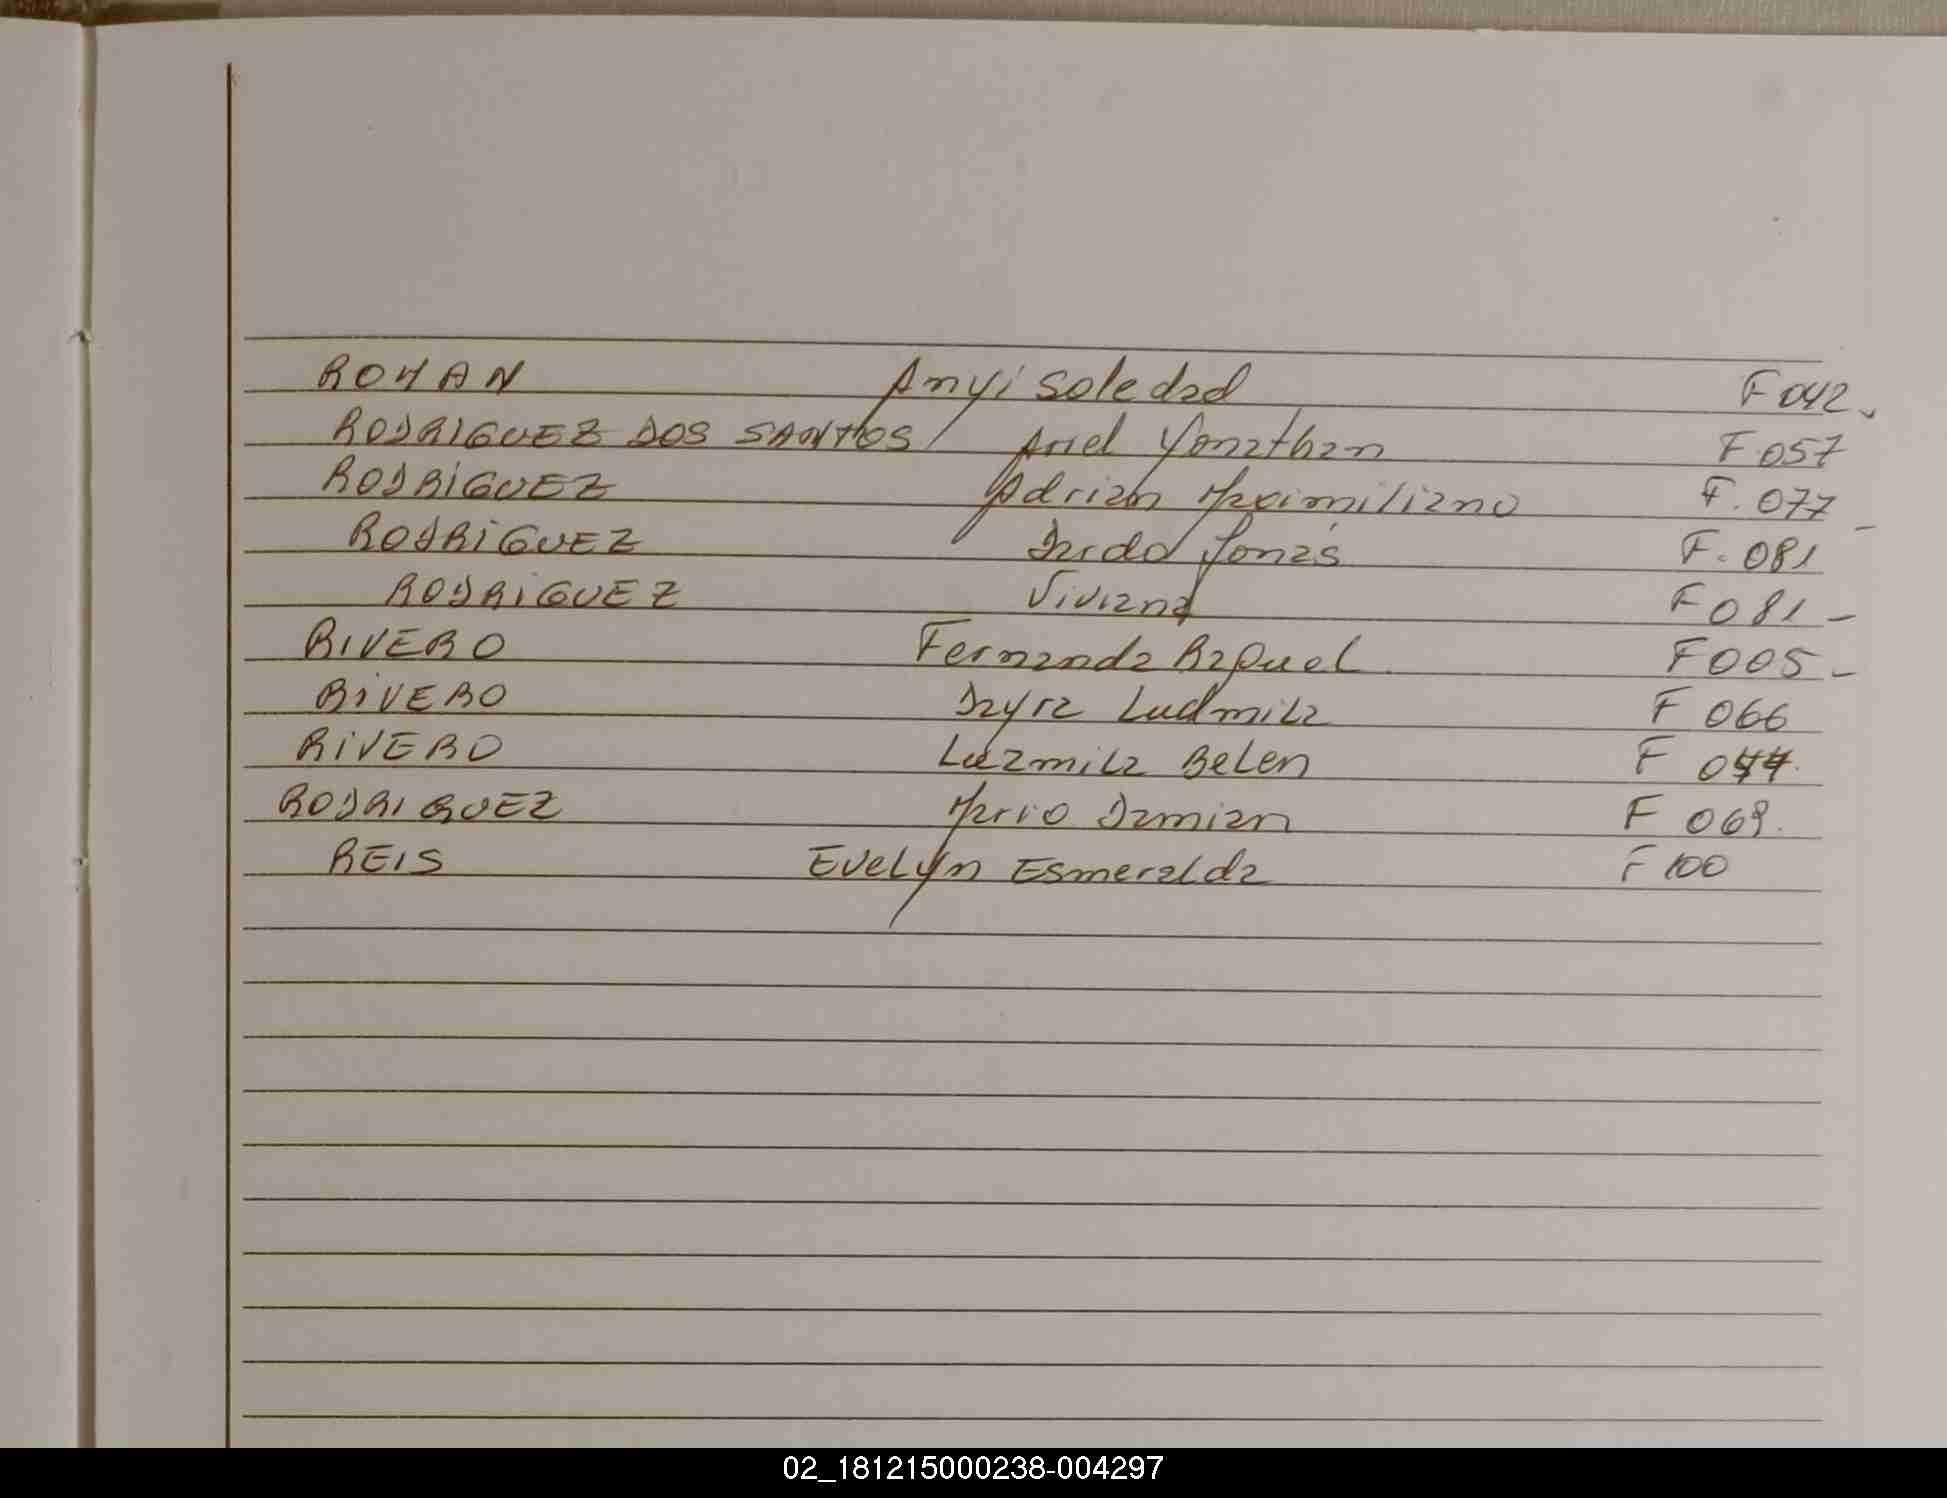 ROMAN Anyi Soledad F 042
RODRIGUEZ DOS SANTOS Ariel Yonathan F 057
RODRIGUEZ Adrian Maximiliano F. 077
RODRIGUEZ Jonás F. 081
RODRIGUEZ Viviana F 081 -
RIVERO Fernanda Raquel F 005 -
RIVERO Ludmila F 066
RIVERO Luzmila Belen F
RODRIGUEZ Mario Damian F 069.
REIS Evelyn Esmeralda F 100
02_181215000238-004297